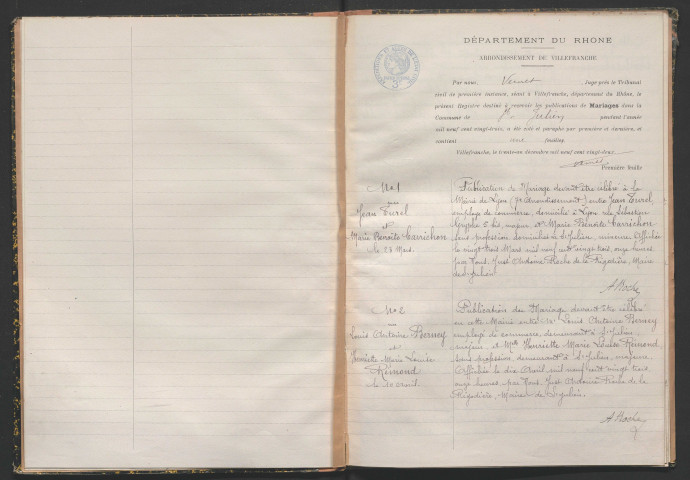 DÉPARTEMENT DU RHONE
ARRONDISSEMENT DE VILLEFRANCHE
Par nous, Juge près le Tribunal
civil de première instance, séant à Villefranche, département du Rhône, le
présent Registre destiné à recevoir les publications de Mariages dans la
Commune de St Julien pendant l'année
mil neuf cent vingt-trois, a été coté et paraphé par première et dernière, et
contient onze feuilles.
Villefranche, le trente-un décembre mil neuf cent vingt-deux.
Première feuille
No 1
Jean Turel
et
Marie Benoite Carrichon
le 23 Mars.
Publication de Mariage devant être célébré à la
Mairie de Lyon (7e Arrondissement) entre Jean Turel,
employé de commerce, domicilié à Lyon rue Sébastien
Gryphe 5 bis, majeur et Marie Benoite Carrichon
sans profession, domiciliée à St Julien, mineure. Affichée
le vingt trois Mars mil neuf cent vingt trois, onze heures,
par Nous, Just Antoine Roche de la Rigodière, Maire
de St Julien.
A Roche
No 2
Louis Antoine Berney
et
Henriette Marie Louise
Rémond
le 10 avril.
Publication de Mariage devant être célébré
en cette Mairie entre Mr Louis Antoine Berney
employé de commerce demeurant à St Julien,
majeur, et Melle Henriette Marie Louise Rémond,
sans profession demeurant à St Julien, majeure.
Affichée le dix Avril mil neuf cent vingt trois
onze heures, par Nous, Just Antoine Roche de la
Rigodière, Maire de St Julien.
A Roche